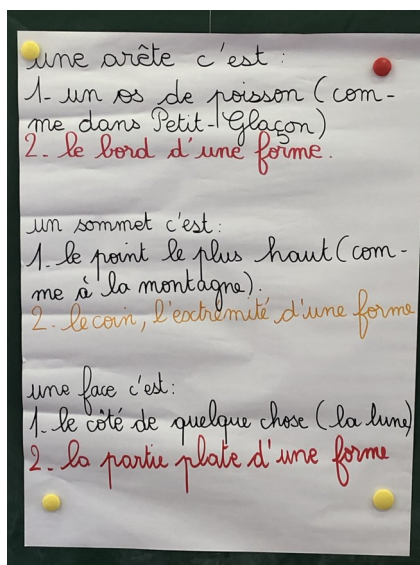 une arête c'est :
1- un os de poisson (com-
me dans Petit-Glaçon)
2. le bord d'une forme.
un sommet c'est:
1. le point le plus haut (com-
me à la montagne).
2. le coin, l'extrémité d'une forme
une face c'est:
1. le côté de quelque chose (la lune)
2. la partie plate d'une forme